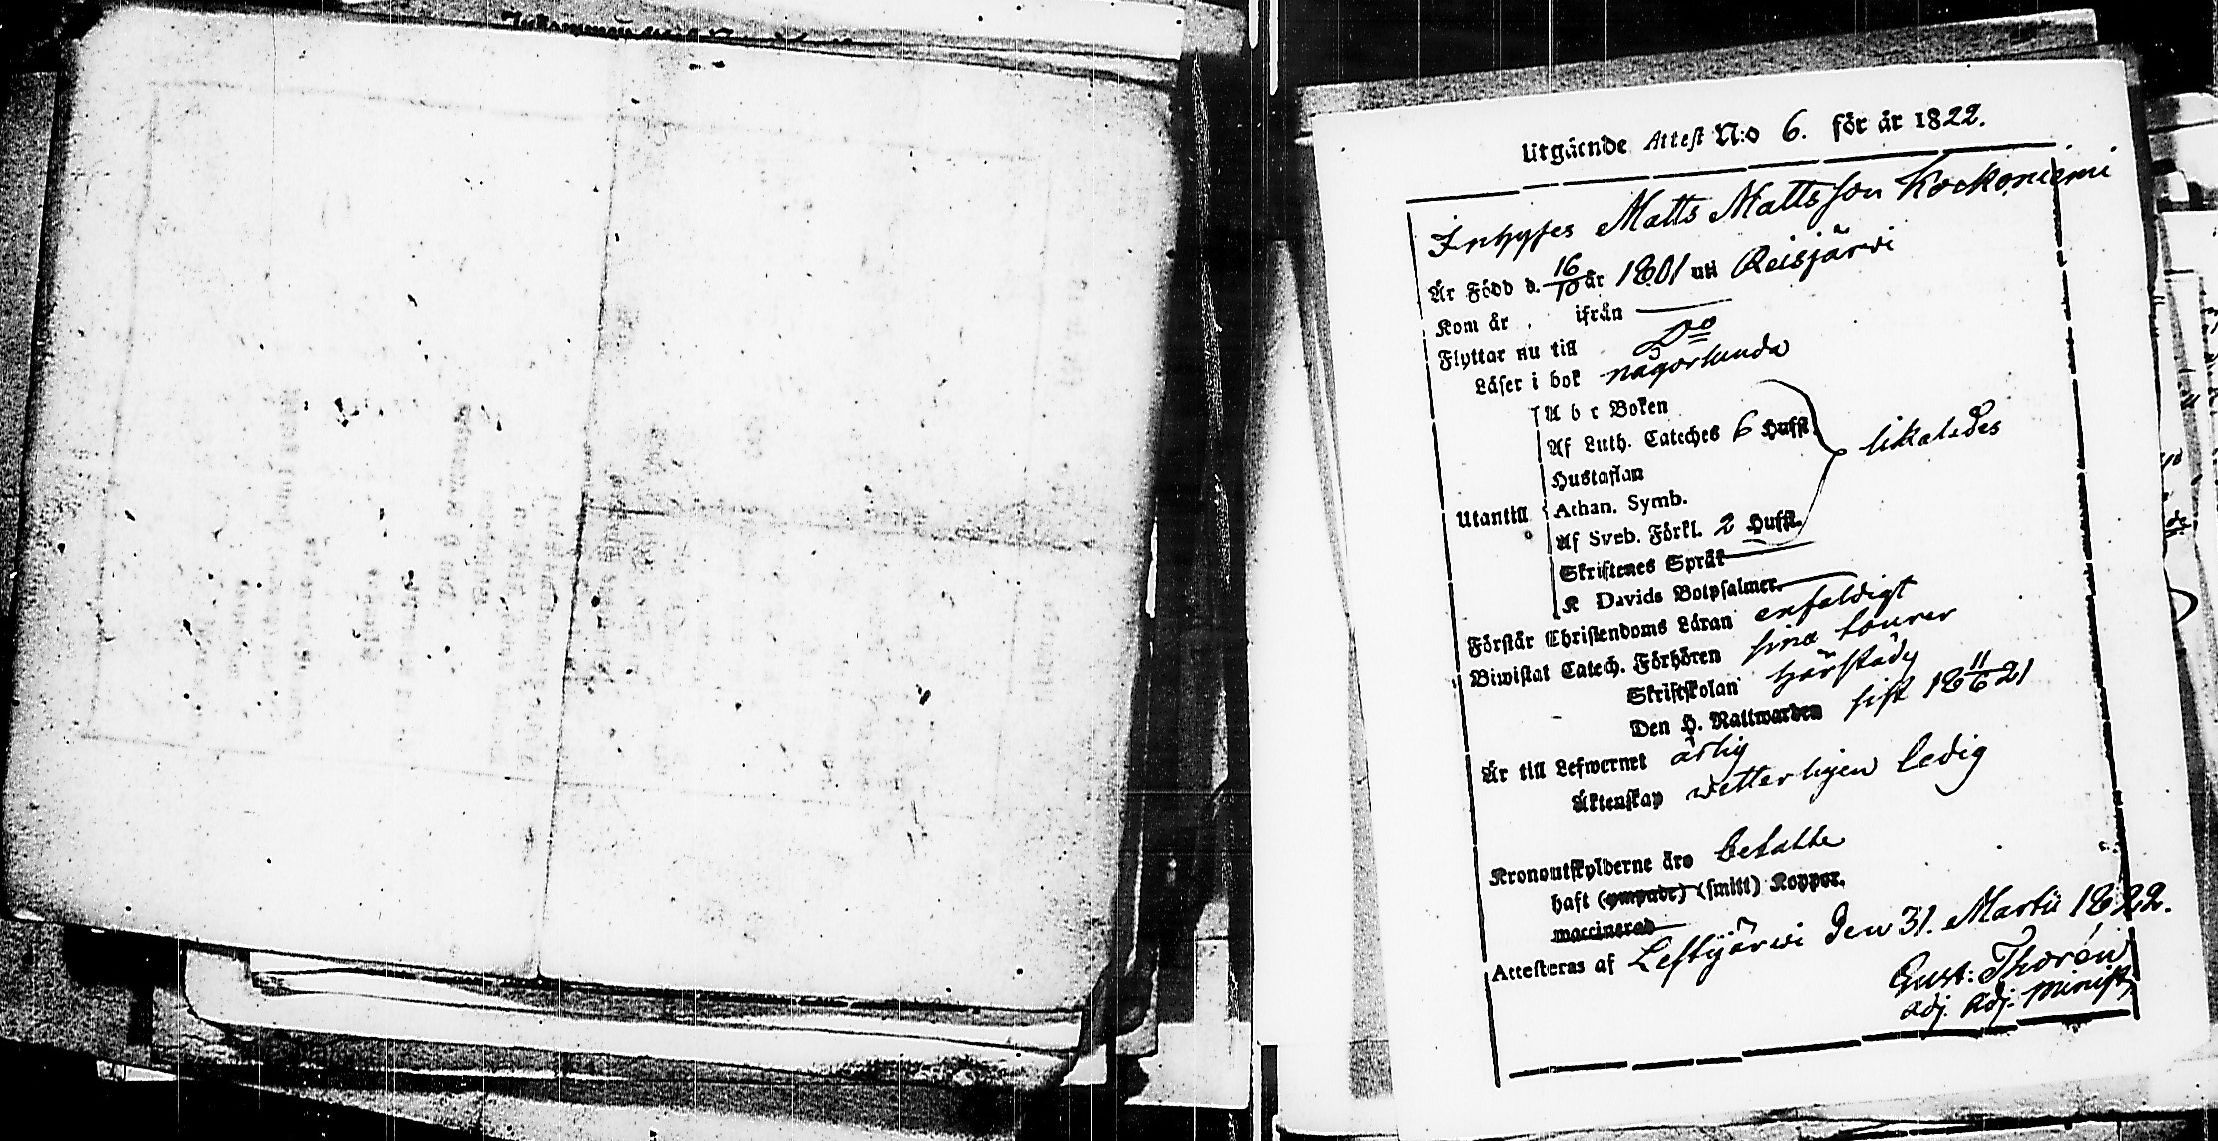 Utgående Attest N:o 6. för år 1822.
Inhyses Matts Mattsson Kockoniemi
Är Född d. 16/10 år 1801 uti Reisjärwi
Kom år . ifrån —
Flyttar nu till Do
Läser i bok någorlunda
A b c Boken
Af Luth. Cateches 6 Hufst. likaledes
Hustaflan
Utantill Athan. Symb.
Af Sveb. Förkl. 2 Hufst.
Skriftenes Språk —
K Davids Botpsalmer. —
Förstår Christendoms Läran enfaldigt
Biwistat Catech. Förhören sina tourer
Skriftskolan härstädes
Den H. Nattwarden sist 18 11/6 21
Är till Lefwernet ärlig
Äktenskap wetterligen ledig
Kronoutskylderne äro betalte
haft (ympade) (smitt) Koppor.
waccinerad
Attesteras af Lestijärwi den 31. Martii 1822.
Gust: Thorén
adj. adj. minist.